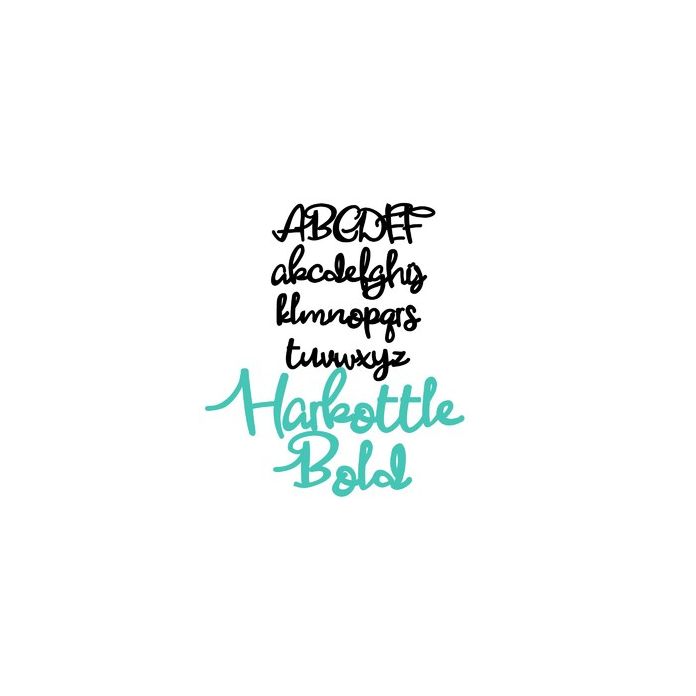 ABCDEF
abcdefghij
klmnopqrs
tuvwxyz
Harkottle
Bold